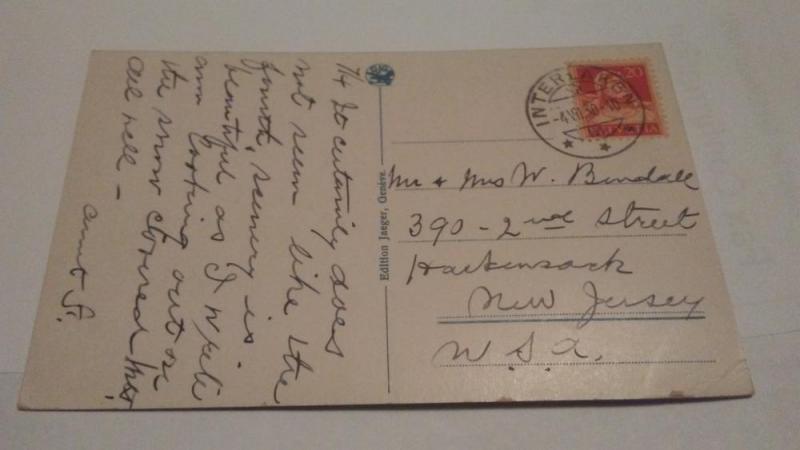 7/4 It certainly does
not seem like the
fourth, scenery is
beautiful as I write
am looking out on
the snow covered Mts.
all well -
Aunt S.
Edition Jaeger, Genève.
INTERLAKEN
-4.VII.30-10
20
HELVETIA
Mr & Mrs W. Bendall
390 - 2nd Street
Hackensack
New Jersey
U.S.A.